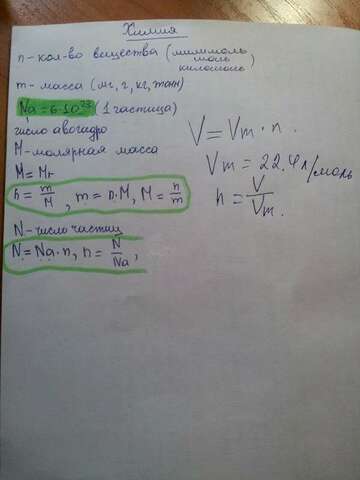 Химия
n - кол-во вещества (миллмоль
моль
киломоль)
m - масса (мг, г, кг, тонн)
Na = 6·10²³ (1 частица)
число авогадро
M - молярная масса
M = Mr
n = m/M, m = n·M, M = n/m
N - число частиц
N = Na·n, n = N/Na,
V = Vm·n.
Vm = 22.4 л/моль
n = V/Vm.